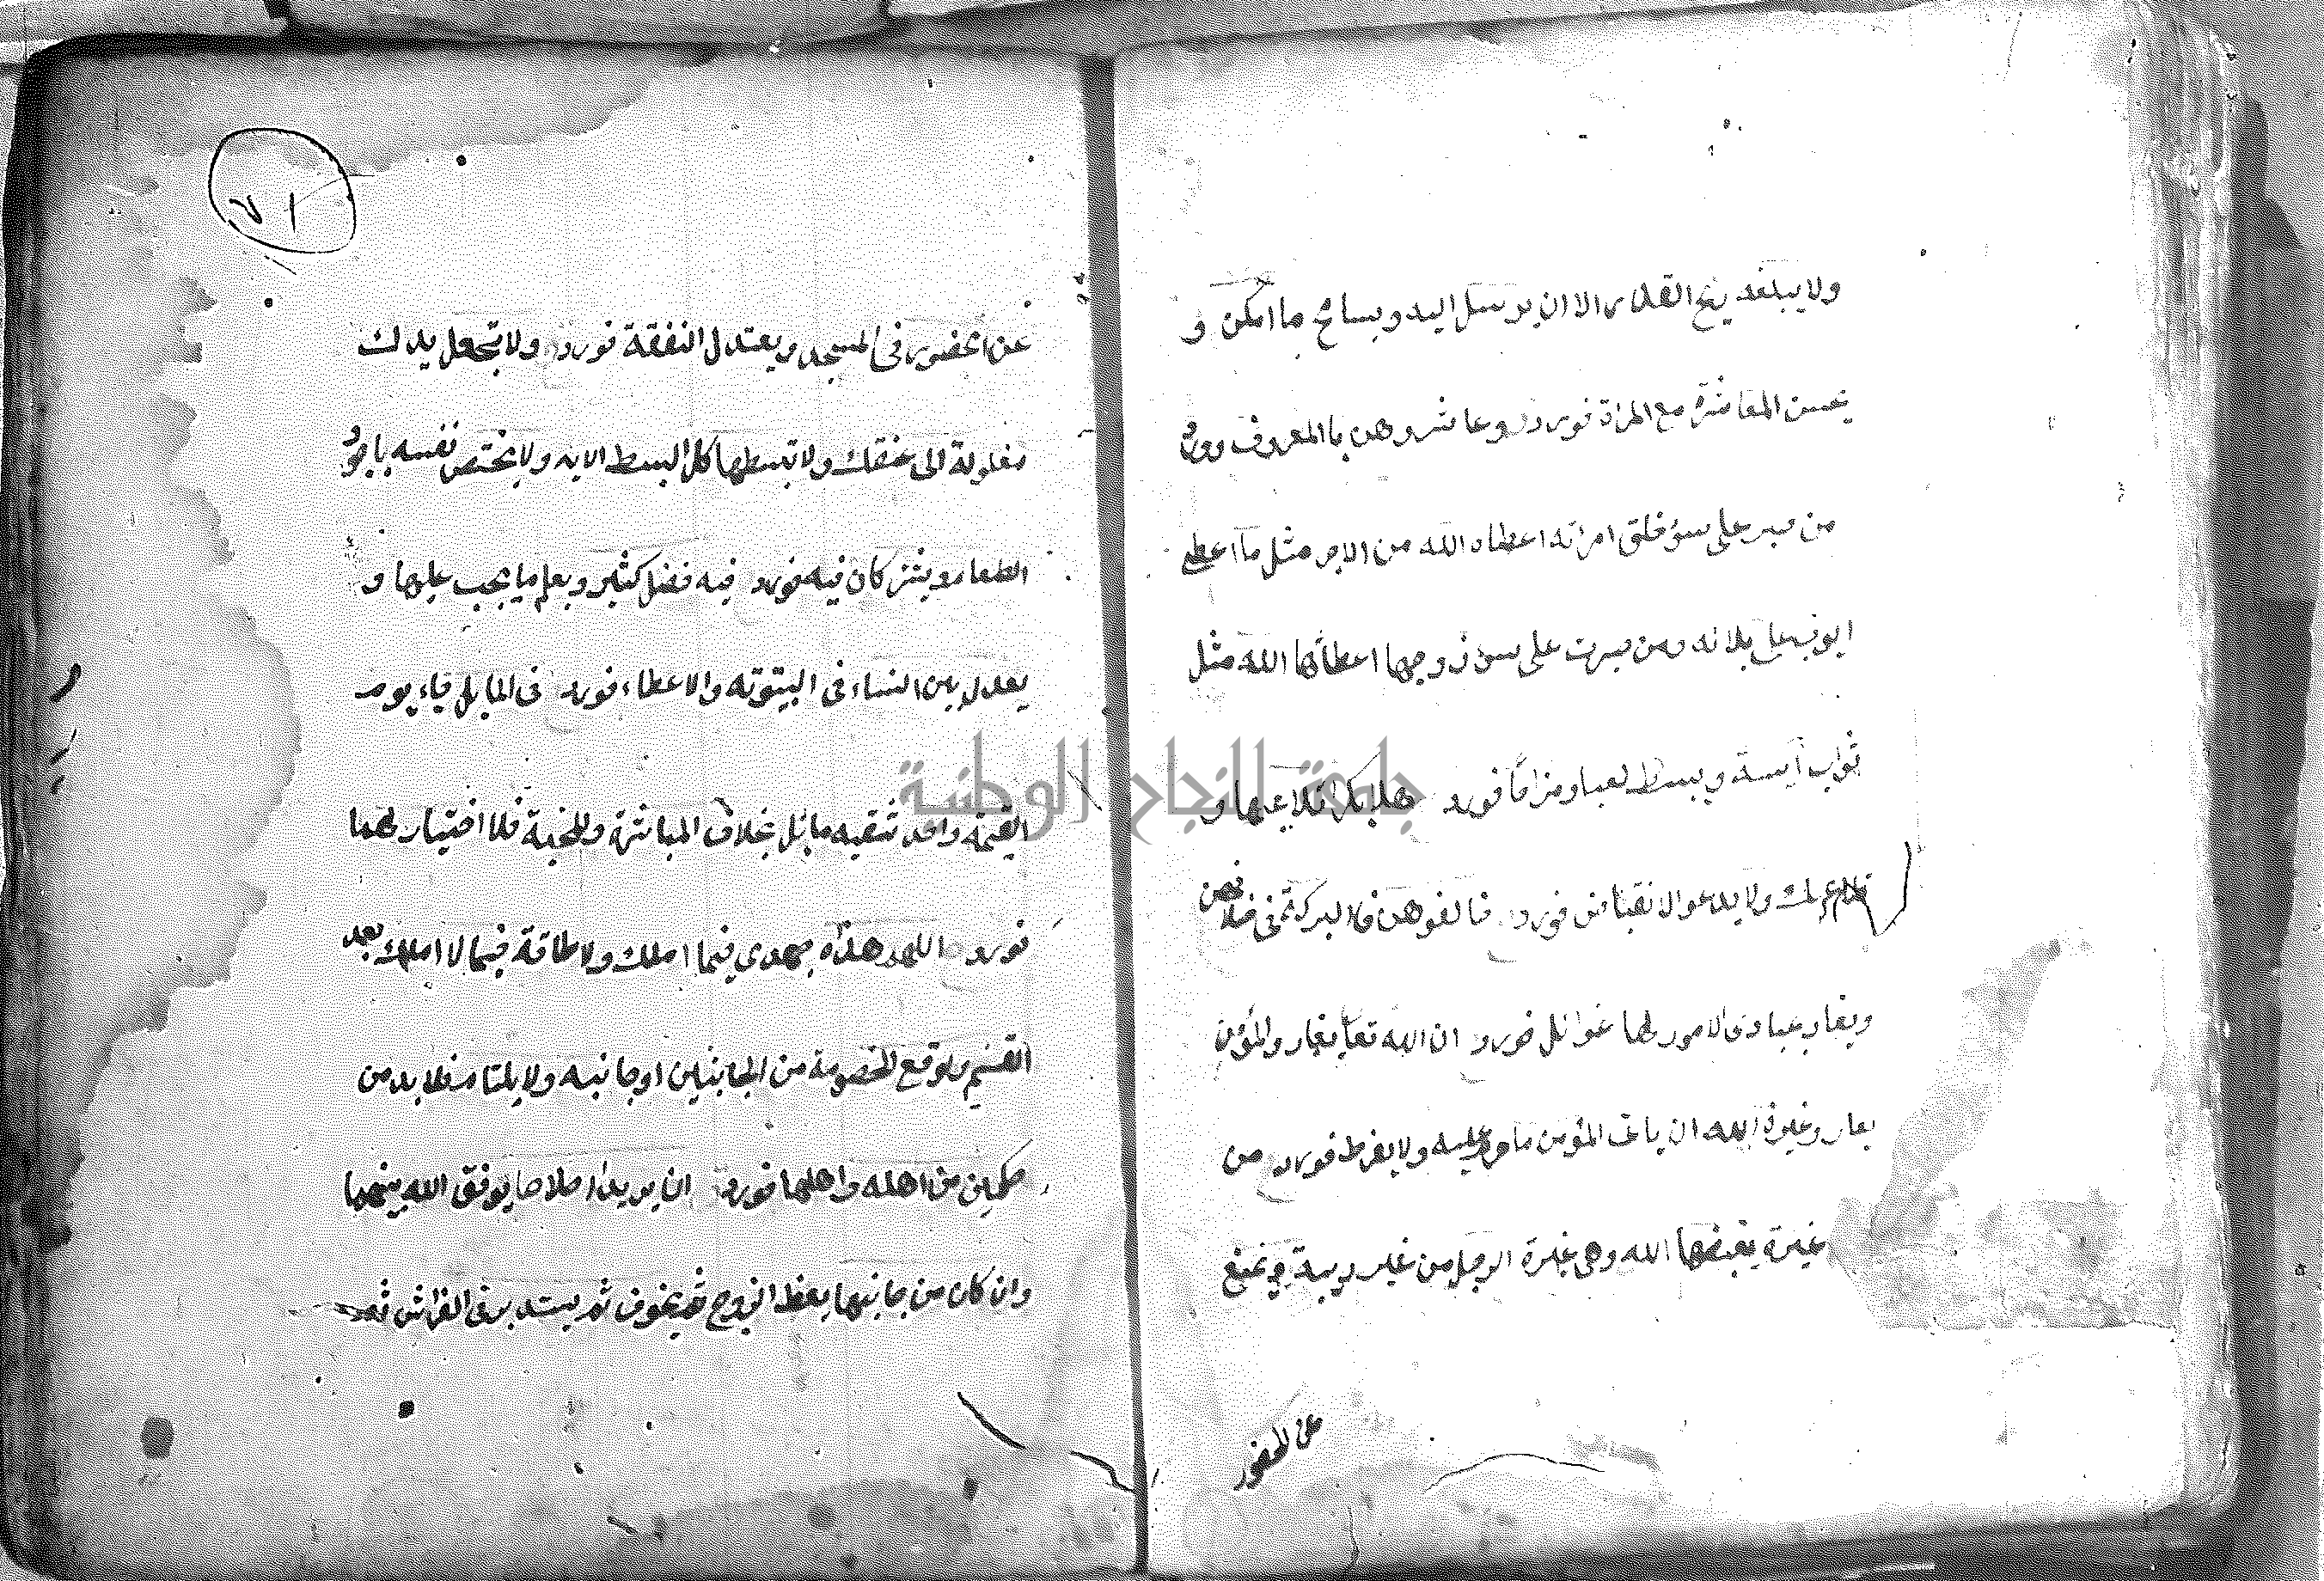 ولا يبلغه ريح القدر الا ان يرسل اليه ويسامح ما امكن و
يحسن المعاشرة مع المراة فورد وعاشروهن بالمعروف وورد
من صبر على سؤ خلق امراته اعطاه الله من الاجر مثل ما اعطى
ايوب على بلائه ومن صبرت على سوء زوجها اعطاها الله مثل
ثواب آسية ويبسط لعبا ومزاحا فورد هلا بكرا تلاعبها و
تلاعبك ولا يدعو الانقباض فورد خالفوهن فان البركة في خلافهن
ويغار عبادى الامور لها غوائل فورد ان الله تعالى يغار والمؤمن
يغار وغيرة الله ان يأت المؤمن ما حرم عليه ولا يفرط فورد من
غيرة يبغضها الله وهى غيرة الرجل من غير ريبة فى يمنع
عن الحضور
٧١
عن الحضور فى المسجد ويعتدل النفقة فورد ولا تجعل يدك
مغلولة الى عنقك ولا تبسطها كل البسط الايه ولا يختص نفسه باجود
الطعام كان فيه فورد فيه فضل كثير ويعلم ما يجب عليها و
يعدل بين النساء فى البيتوته والاعطاء فورد فى المايل جاء يوم
القيمة واحد شقيه مائل بخلاف المباشرة والمحبة فلا اختيار لهما
فورد اللهم هذا جهدى فيما املك ولا طاقة فيما لا املك بعد
القسم ولو وقع الخصومة من الجانبين او جانبه ولا يلتام فلا بد من
حكمين من اهله واهلها فورد ان يريدا اصلاحا يوفق الله بينهما
وان كان من جانبها يعظ الزوج ثم يخوف ثم يستدبر فى الفراش ثم
جامعة النجاح الوطنية